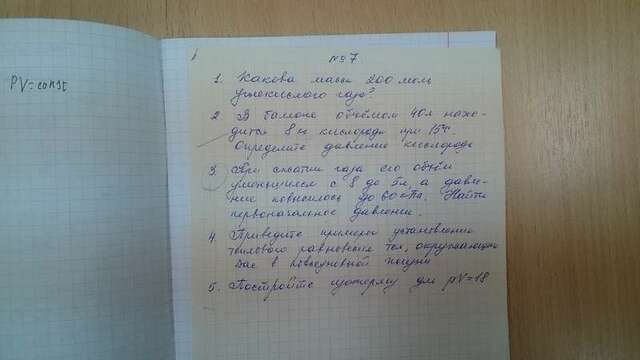 PV=const
№7
1. Какова масса 200 моль
углекислого газа?
2. В балоне объёмом 40л нахо-
дится 8 кислорода при 15°C.
Определите давление кислорода
3. При сжатии газа его объём
уменьшился с 8 до 5л, а давле-
ние повысилось до 60кПа. Найти
первоначальное давление.
4. Приведите примеры установления
теплового равновесия тел, окружающих
Вас в повседневной жизни
5. Постройте изотерму для pV=18